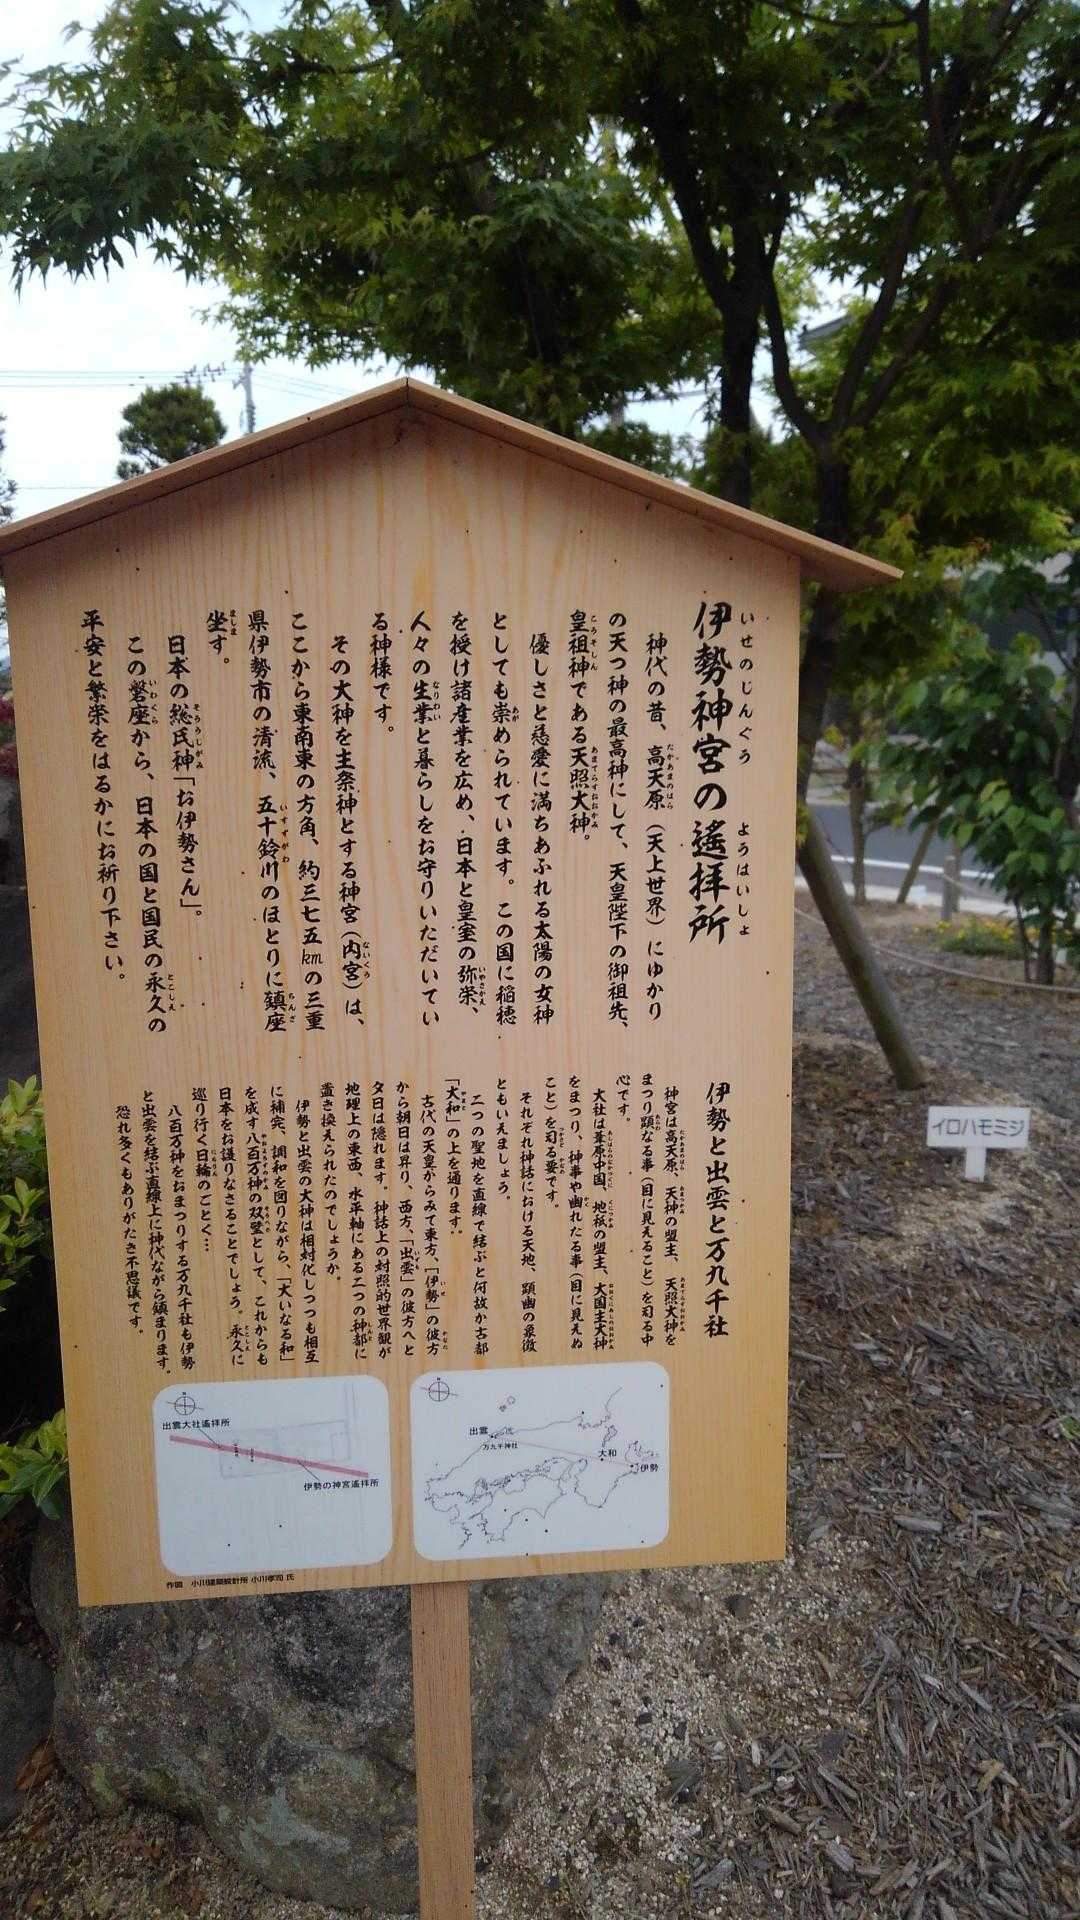 伊勢神宮の遙拝所
いせのじんぐう ようはいしょ
神代の昔、高天原（天上世界）にゆかり
の天つ神の最高神にして、天皇陛下の御祖先、
皇祖神である天照大神。
優しさと慈愛に満ちあふれる太陽の女神
としても崇められています。この国に稲穂
を授け諸産業を広め、日本と皇室の弥栄、
人々の生業と暮らしをお守りいただいてい
る神様です。
その大神を主祭神とする神宮（内宮）は、
ここから東南東の方角、約三七五㎞の三重
県伊勢市の清流、五十鈴川のほとりに鎮座
坐す。
日本の総氏神「お伊勢さん」。
この磐座から、日本の国と国民の永久の
平安と繁栄をはるかにお祈り下さい。
伊勢と出雲と万九千社
神宮は高天原、天神の盟主、天照大神を
まつり顕なる事（目に見えること）を司る中
心です。
大社は葦原中国、地祇の盟主、大国主大神
をまつり、神事や幽れたる事（目に見えぬ
こと）を司る要です。
それぞれ神話における天地、顕幽の象徴
ともいえましょう。
二つの聖地を直線で結ぶと何故か古都
「大和」の上を通ります。
古代の天皇からみて東方、「伊勢」の彼方
から朝日は昇り、西方、「出雲」の彼方へと
夕日は隠れます。神話上の対照的世界観が
地理上の東西、水平軸にある二つの神都に
置き換えられたのでしょうか。
伊勢と出雲の大神は相対化しつつも相互
に補完、調和を図りながら、「大いなる和」
を成す八百万神の双璧として、これからも
日本をお護りなさることでしょう。永久に
巡り行く日輪のごとく…
八百万神をおまつりする万九千社も伊勢
と出雲を結ぶ直線上に神代ながら鎮まります。
恐れ多くもありがたき不思議です。
出雲
万九千神社
大和
伊勢
出雲大社遙拝所
伊勢の神宮遙拝所
作図 小川建築設計所 小川孝司 氏
イロハモミジ